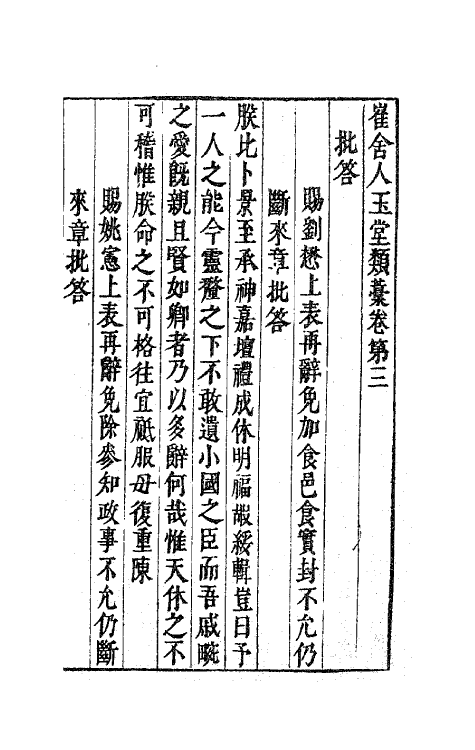 崔舍人玉堂類藁卷第三
批答
賜劉懋上表再辭免加食邑食實封不允仍
斷來章批答
朕比卜景至承神嘉壇禮成休明福嘏綏輯豈曰予
一人之能今靈釐之下不敢遺小國之臣而吾戚畹
之愛既親且賢如卿者乃以多辭何哉惟天休之不
可稽惟朕命之不可格往宜祗服毋復重陳
賜姚憲上表再辭免除參知政事不允仍斷
來章批答